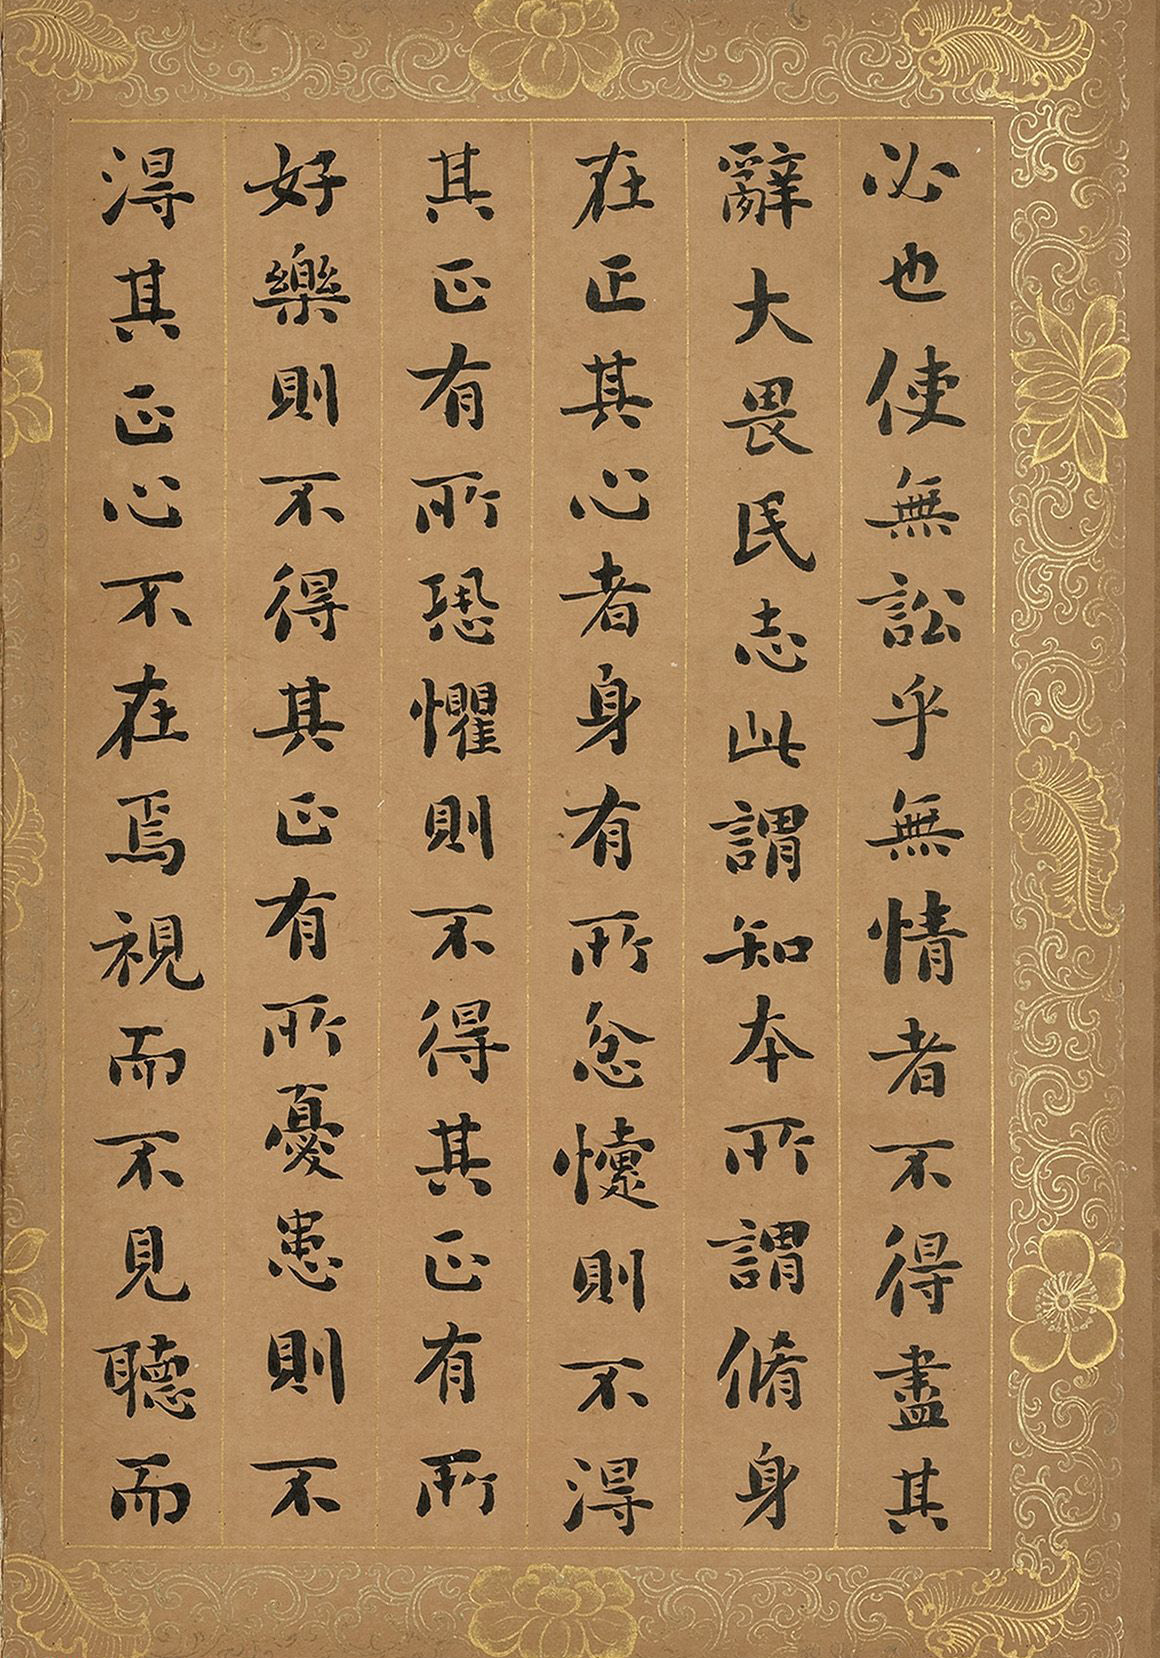 必也使無訟乎無情者不得盡其
辭大畏民志此謂知本所謂脩身
在正其心者身有所忿懥則不得
其正有所恐懼則不得其正有所
好樂則不得其正有所憂患則不
得其正心不在焉視而不見聽而